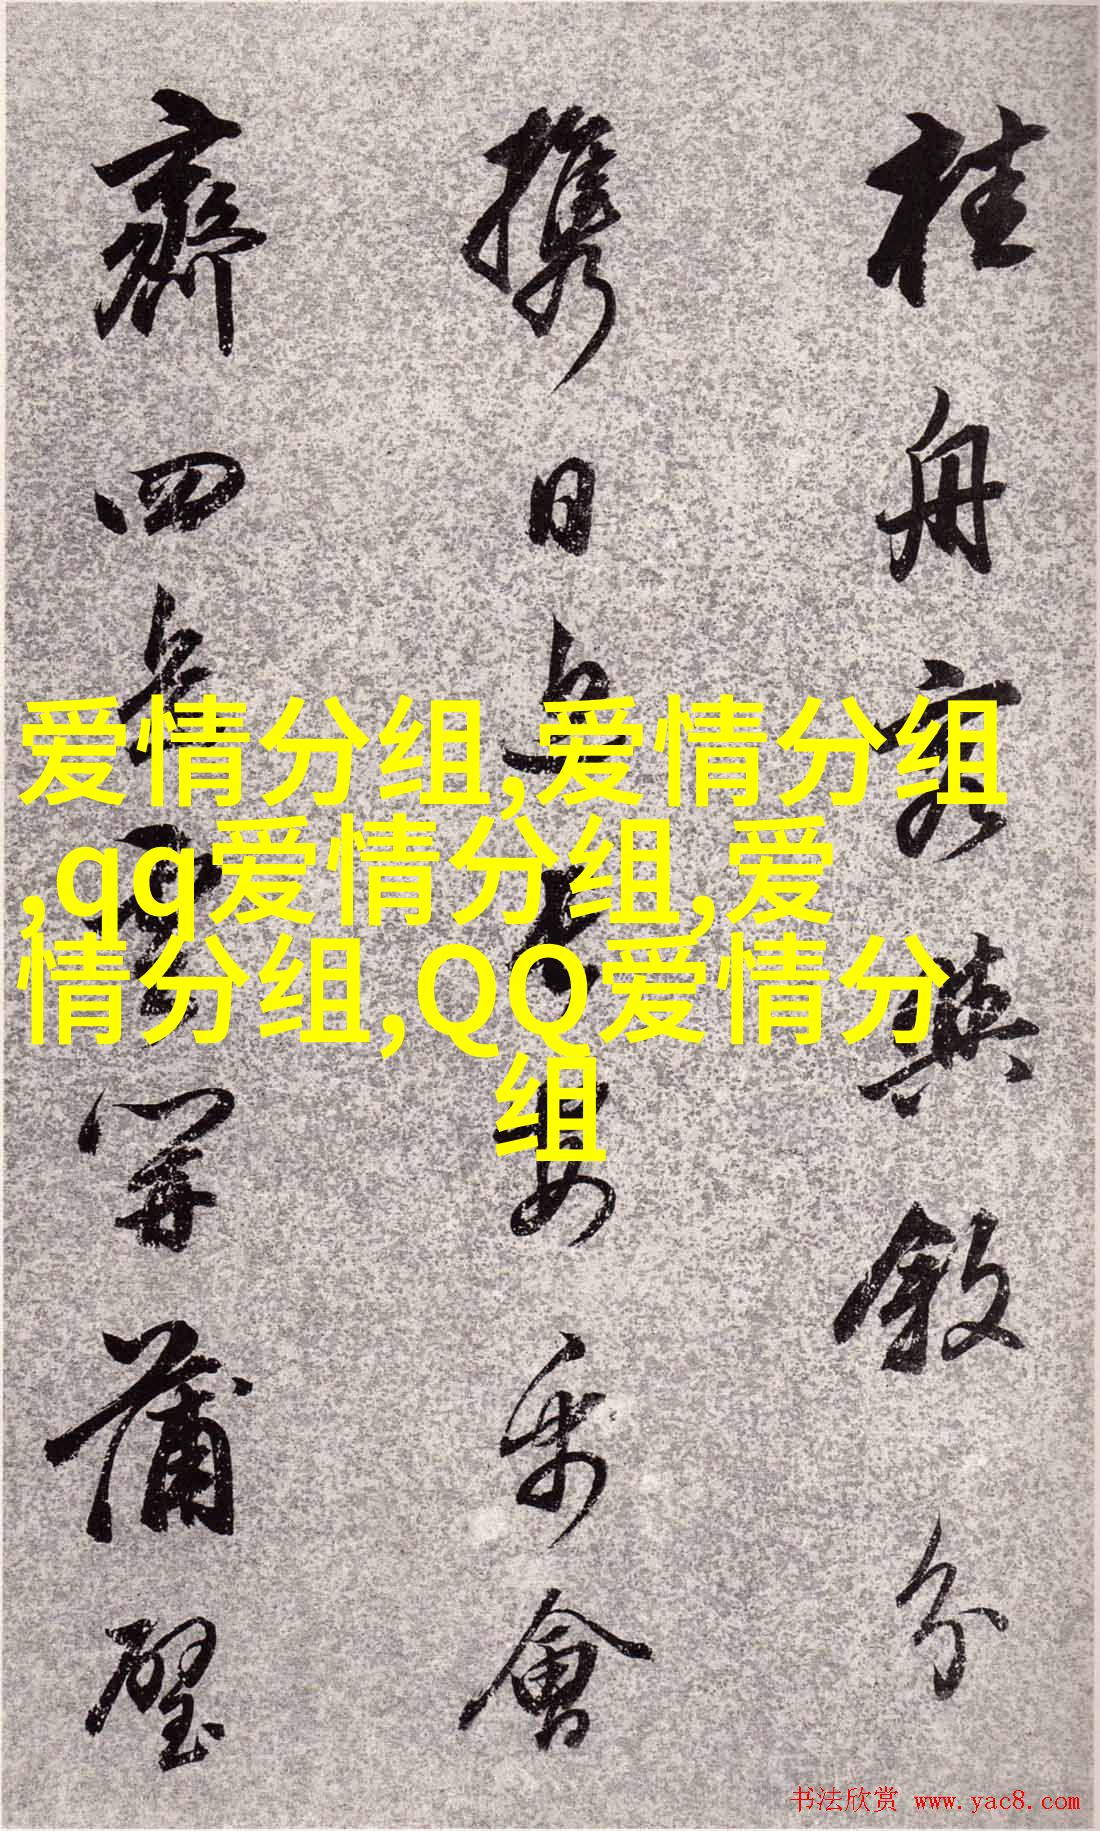 桂舟容與敘分
攜日與長安會
齊四開蒲璧
爱情分组,爱情分组
,qq爱情分组,爱
情分组,QQ爱情分
组
书法欣赏 www.yac8.com